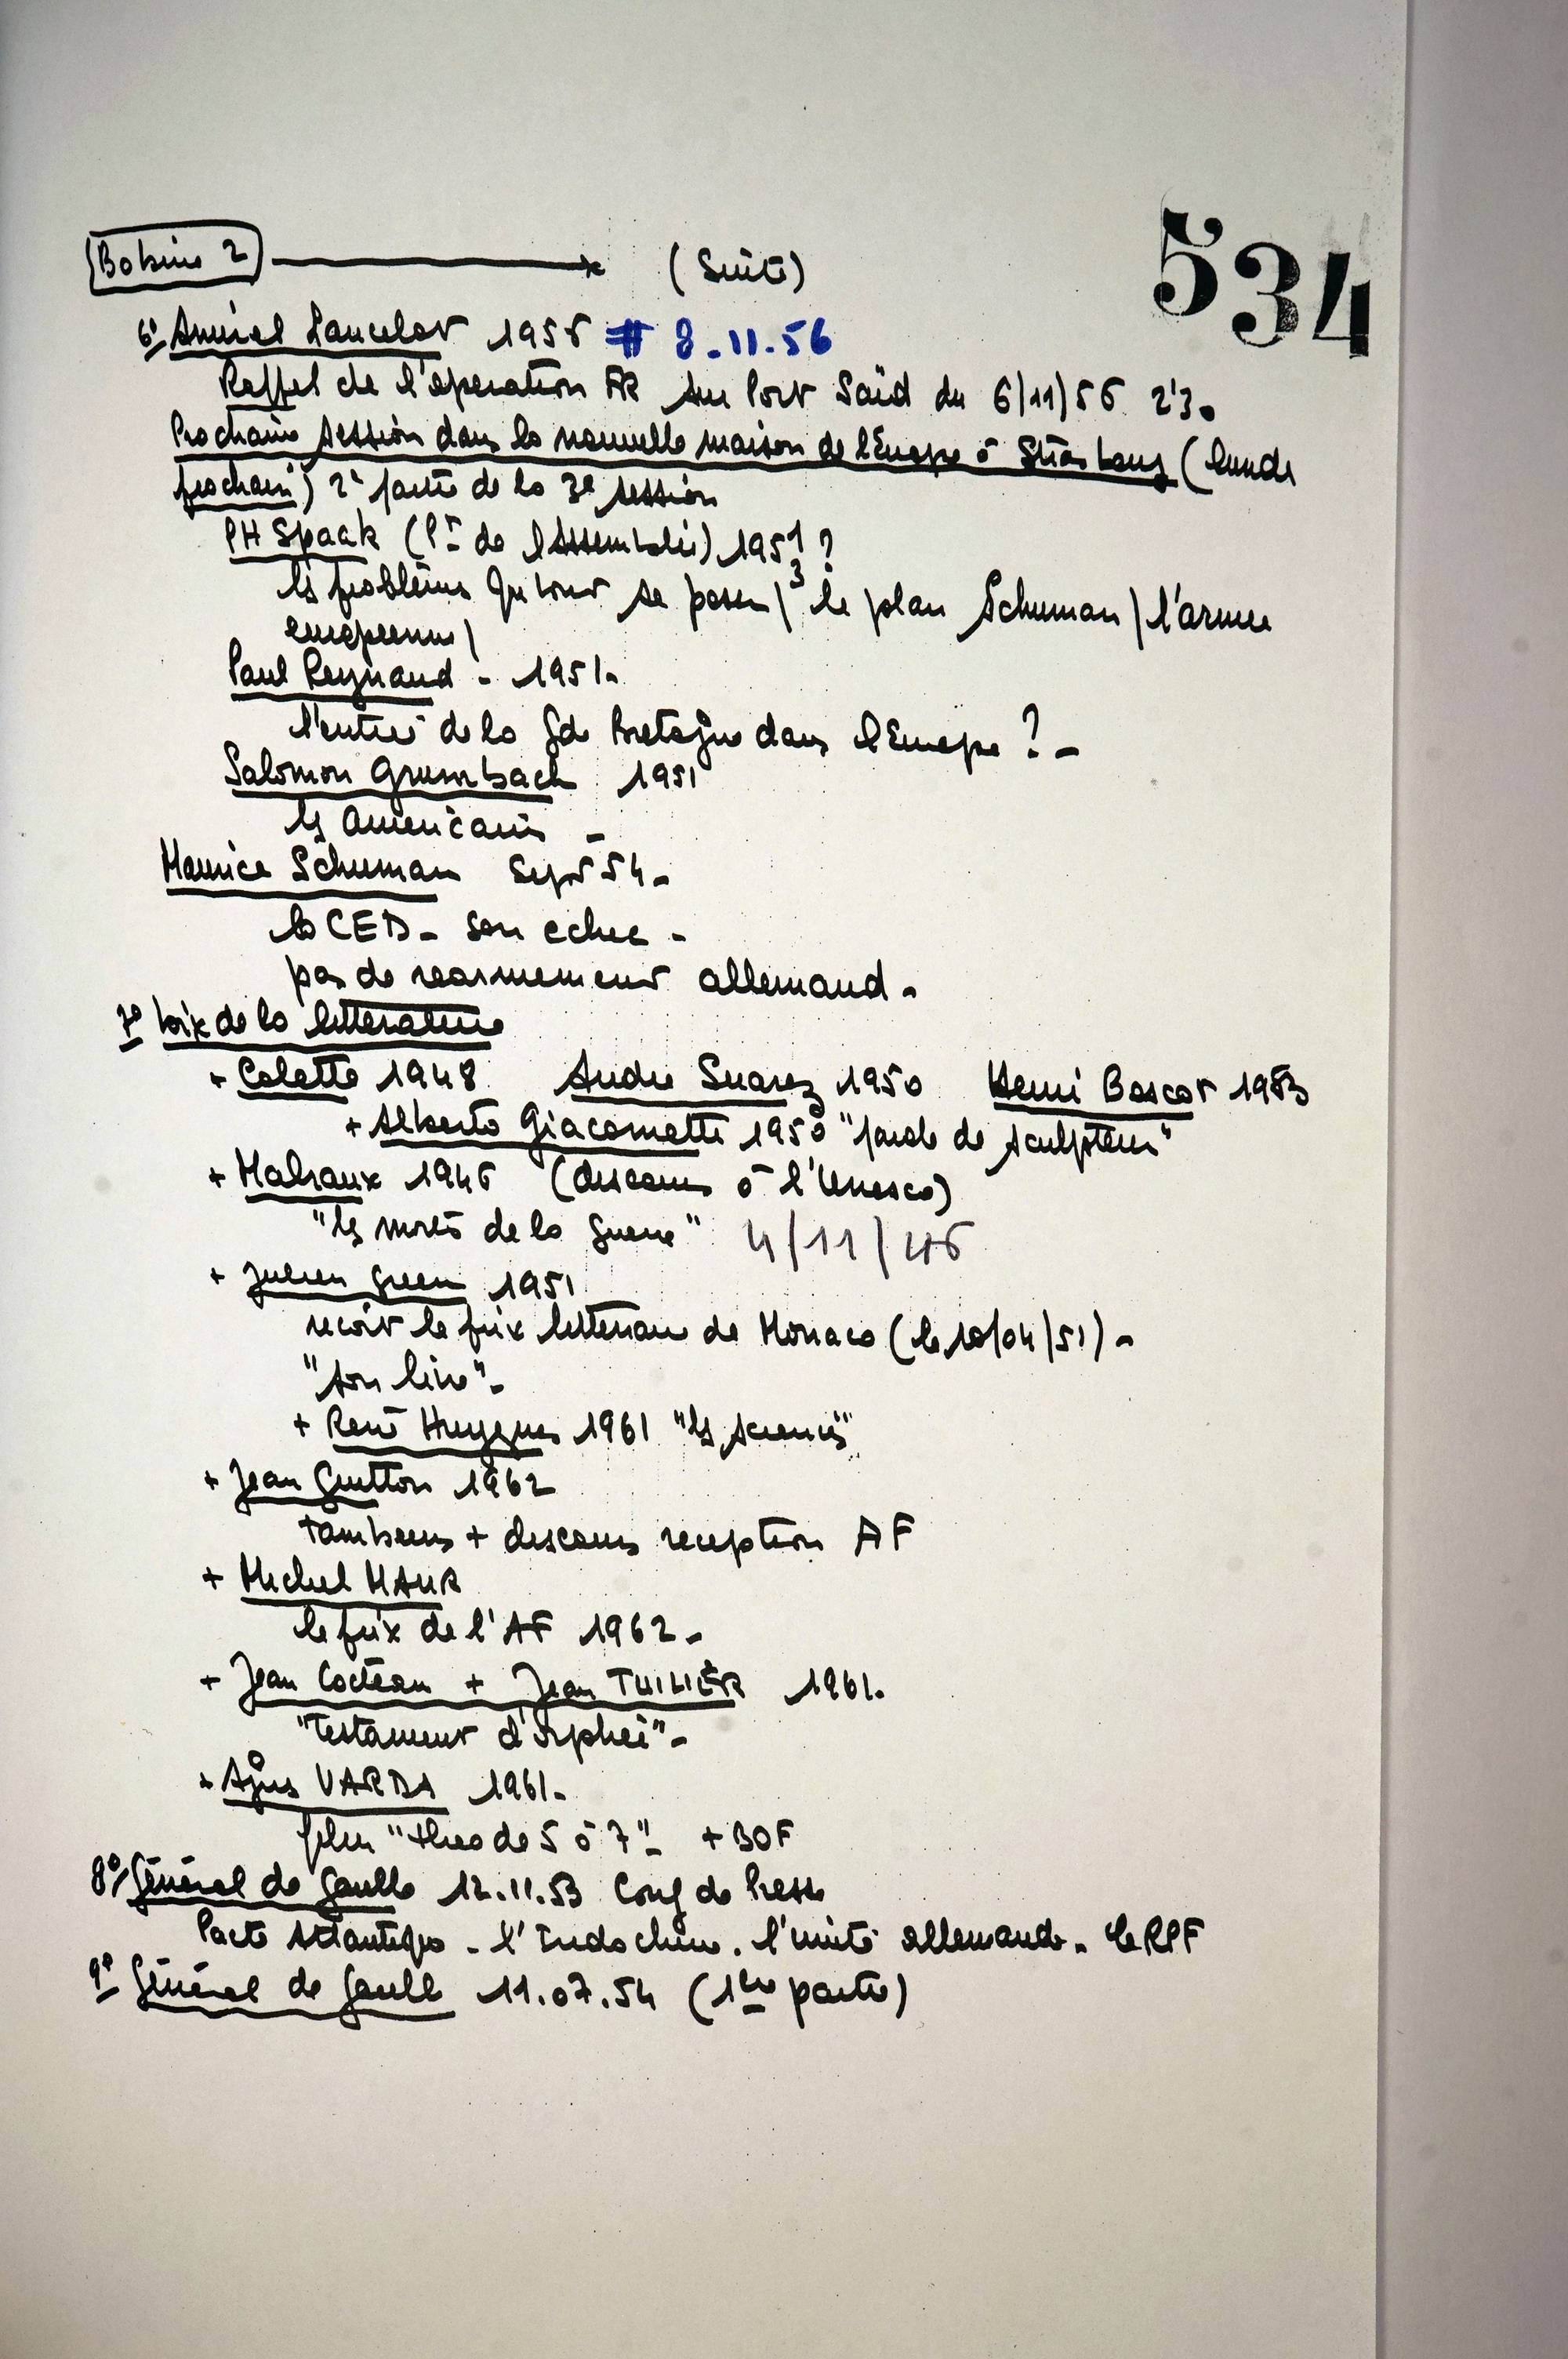 534
Bobine 2 (Suite)
6° Amiral Lancelot 1956 # 8.11.56
Rappel de l'operation FR sur Port Saïd du 6/11/56 2'30
Prochaine session dans la nouvelle maison de l'Europe à Strasbourg (lundi
prochain) 2e partie de la 3e session
PH Spaak (Pt de l'Assemblée) 1951 ?
3
les problèmes qui vont se poser / le plan Schuman / l'armee
europeenne /
Paul Reynaud - 1951-
l'entrée de la Gde Bretagne dans l'Europe ? -
Salomon Grumbach 1951
les americains -
Maurice Schuman Sept 54 -
la CED - son echec -
pas de rearmement allemand -
7° Voix de la litterature
+ Colette 1948 Andre Suarez 1950 Henri Boscot 1953
+ Alberto Giacometti 1950 "parole de sculpteur"
+ Malraux 1946 (discours à l'Unesco)
"les morts de la guerre" 4/11/46
+ Julien Green 1951
recoit le prix litteraire de Monaco (le 10/04/51) -
"son livre" -
+ René Huygues 1961 "les sciences"
+ Jean Guitton 1962
tambours + discours reception AF
+ Michel MAUR
le prix de l'AF 1962 -
+ Jean Cocteau + Jean THILIER 1961.
"Testament d'Orphée" -
+ Agnes VARDA 1961-
film "Cleo de 5 à 7" - + BOF
8° Général de Gaulle 12.11.53 Conf de Presse
Pacte Atlantique - l'Indochine. l'unité allemande - le RPF
9° Général de Gaulle 11.07.54 (1ere partie)